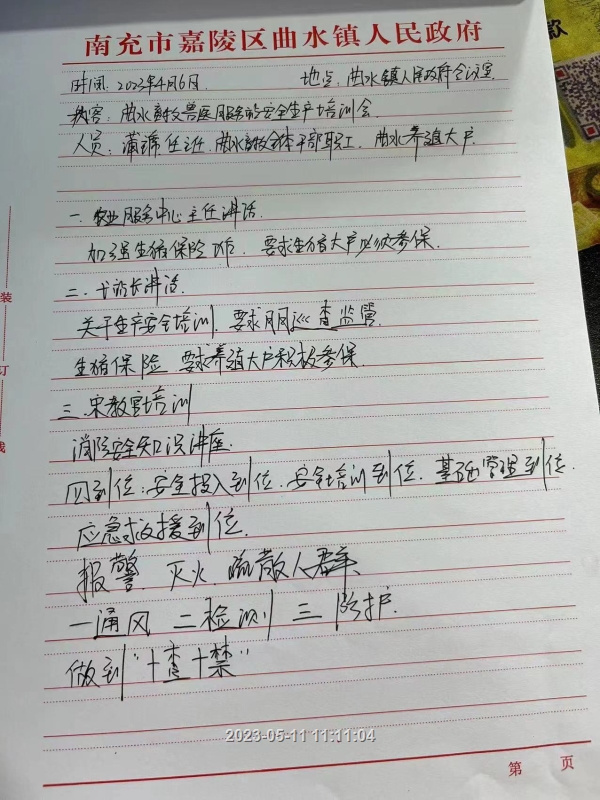 南充市嘉陵区曲水镇人民政府
时间：2023年4月6日 地点：曲水镇人民政府会议室
内容：曲水畜牧兽医服务站安全生产培训会
人员：蒲 主任、曲水畜牧全体干部职工、曲水养殖大户
一、农业服务中心主任讲话
加强生猪保险工作，要求生猪大户必须参保。
二、 站长讲话
关于生产安全培训，要求周周巡查监管
生猪保险，要求养殖大户积极参保
三、宋教官培训
消防安全知识讲座
四到位：安全投入到位、安全培训到位、基础管理到位、
应急救援到位
报警、灭火、疏散人群、
一通风 二检测 三防护
做到“十查十禁”
装
订
线
2023-05-11 11:11:04
第 页
款